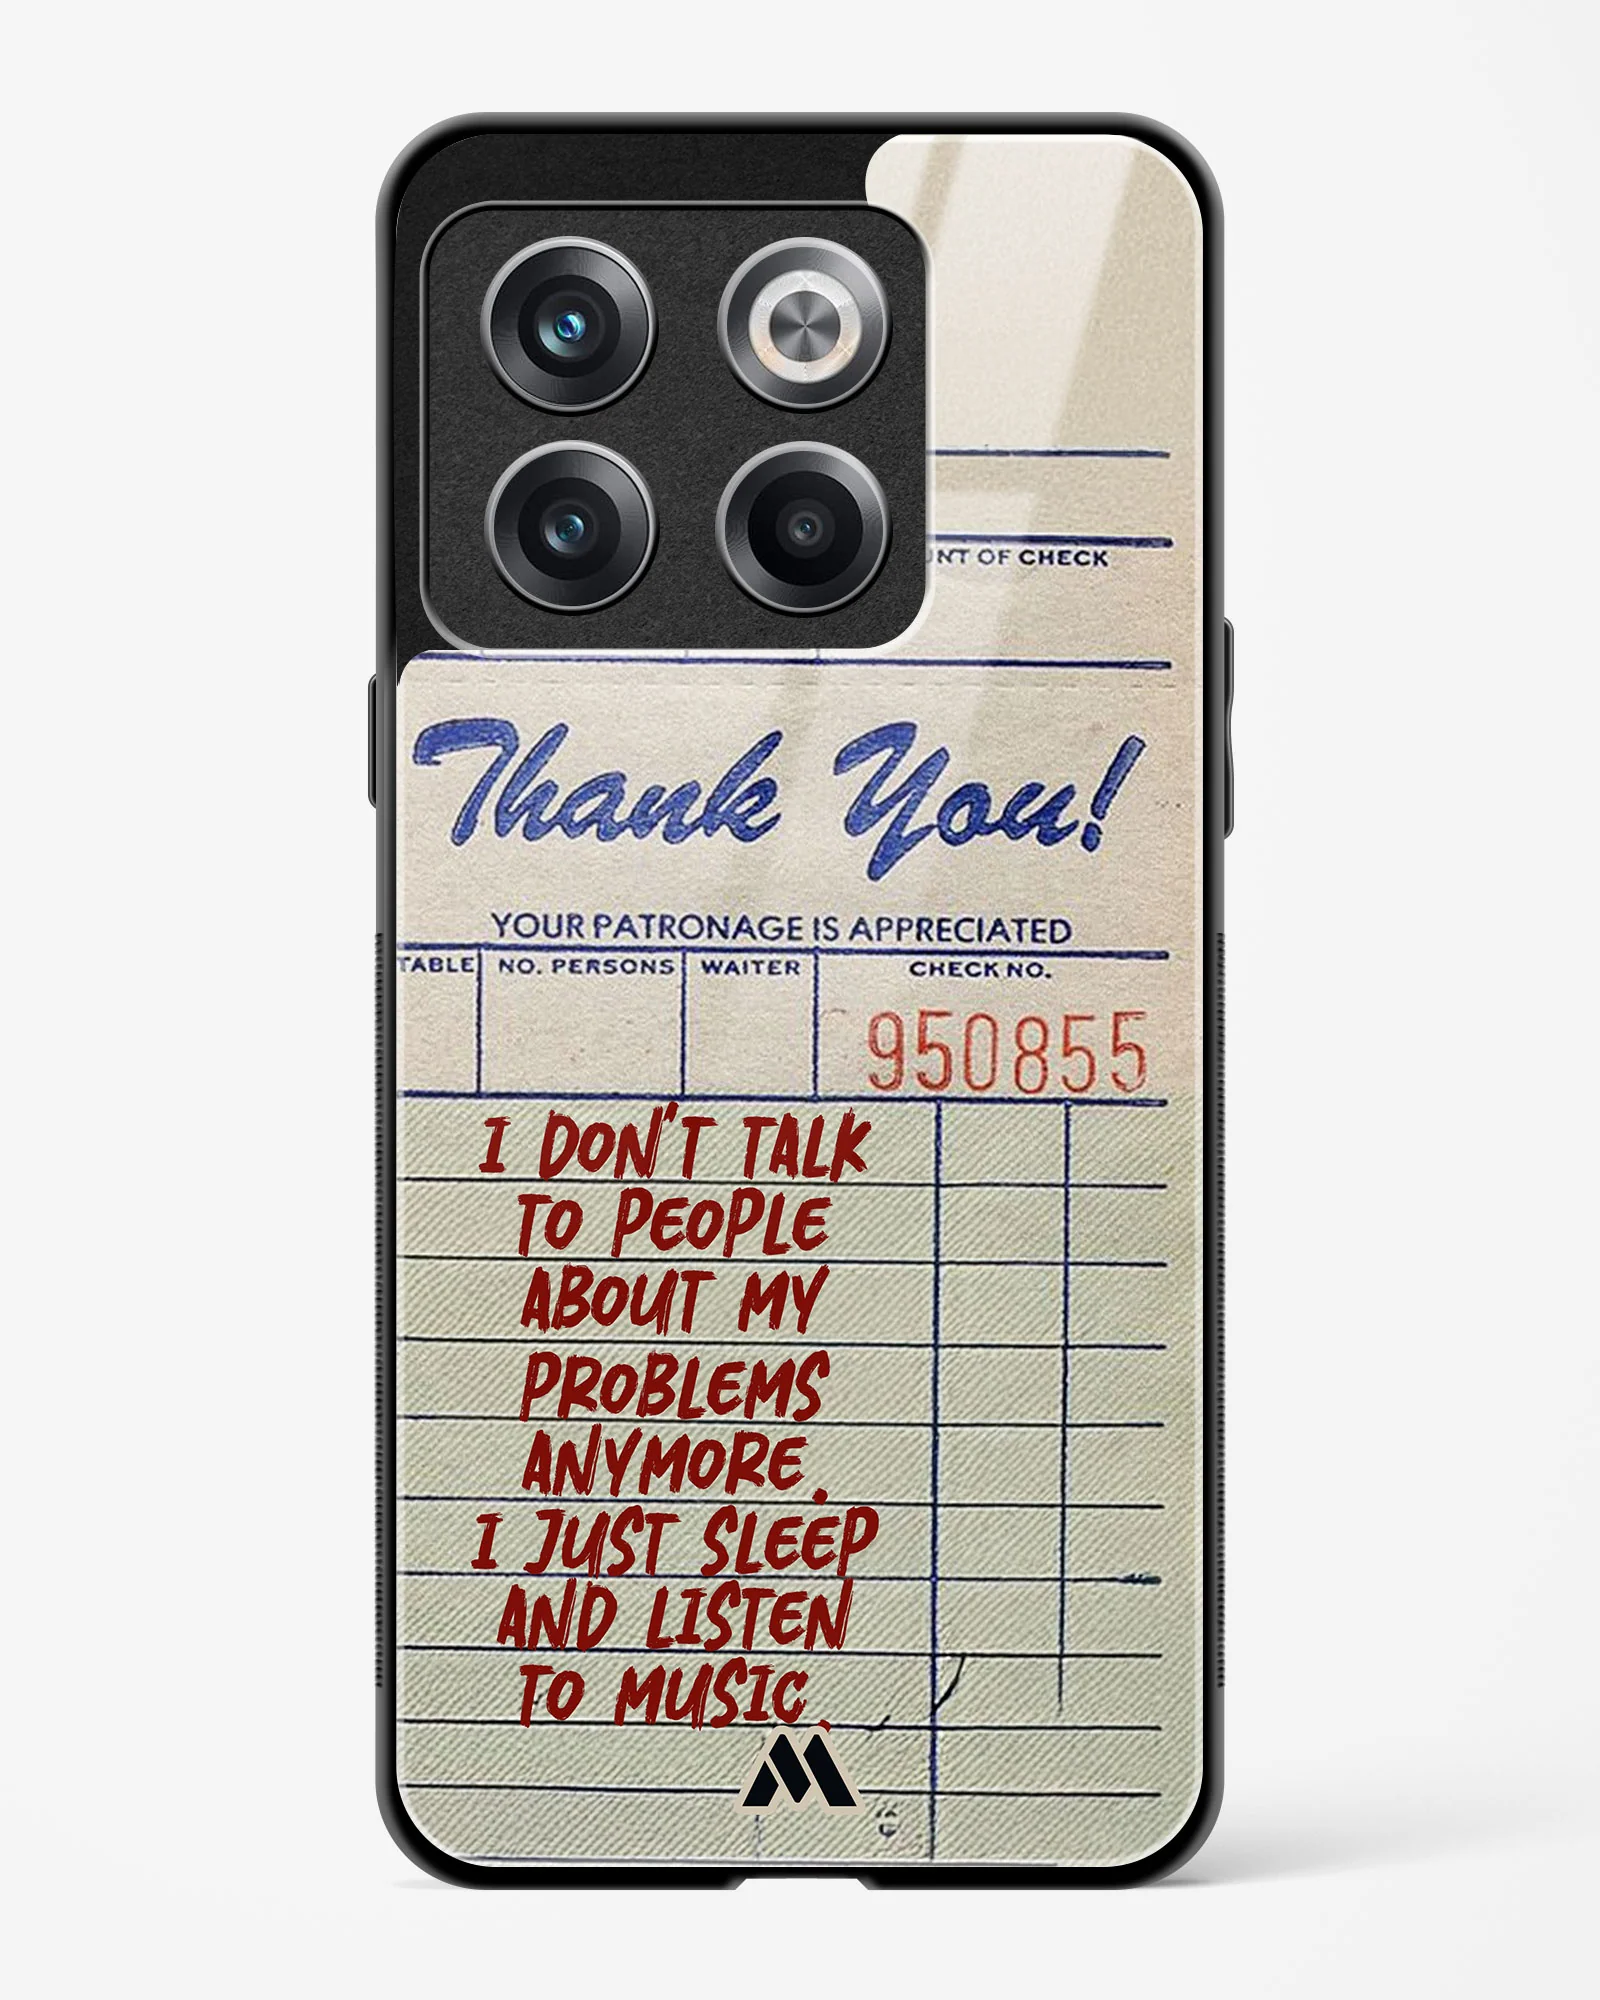 OF CHECK
Thank You!
YOUR PATRONAGE IS APPRECIATED
TABLE NO. PERSONS WAITER CHECK NO.
950855
I DON'T TALK
TO PEOPLE
ABOUT MY
PROBLEMS
ANYMORE.
I JUST SLEEP
AND LISTEN
TO MUSIC.